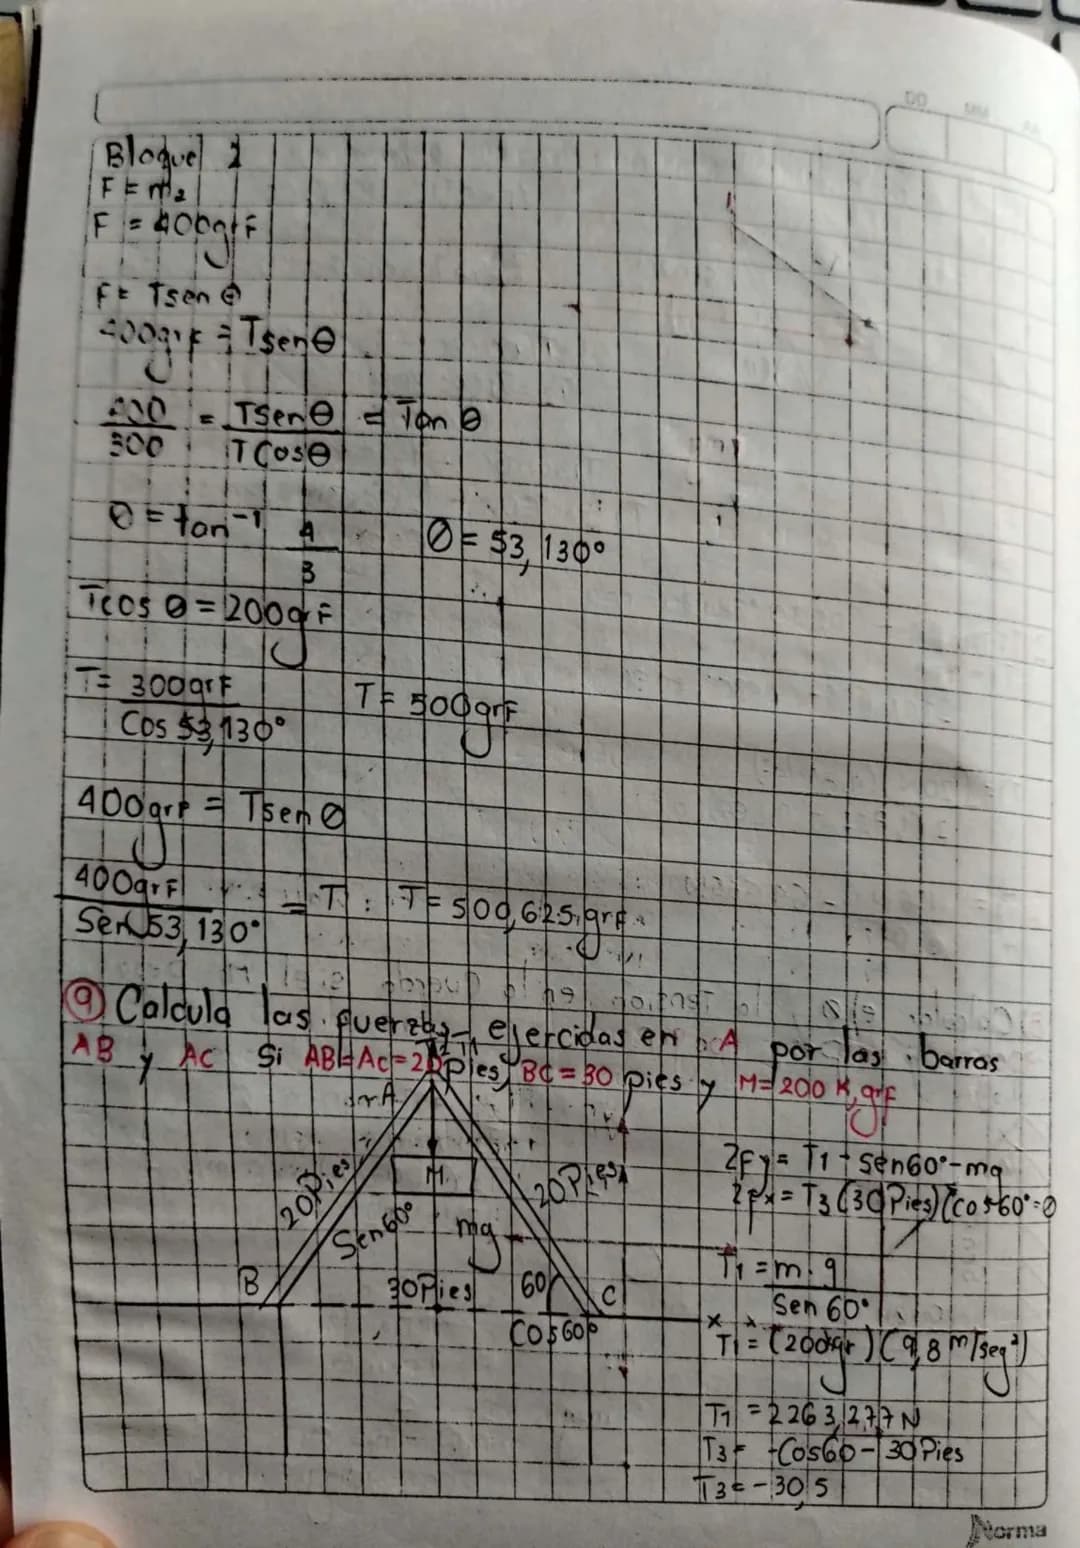 DD MM AA
Bloque 2
F = m2
F = 400grF
F = Tsen θ
400grF = Tsenθ
400 = Tsenθ = Tan θ
300 TCosθ
θ = tan-1 4 θ = 53,130°
3
Tcos θ = 200grF
T= 300grF T = 500grF
Cos 53,130°
400grF = Tsen θ
400grF = T : T = 500,625 grF
Sen 53,130°
9 Calcula las fuerzas ejercidas en A por las barras
AB y AC Si AB=AC=20 pies, BC=30 pies y M=200 K,grF
A
20Pies
M
20Pies
Sen60°
mg
B 30Pies 60° C
Cos60°
Σfy = T1 + Sen60°-mg
Σfx = T3 (30 Pies)(cos60°=0
T1 = m.g
Sen 60°
T1 = (200gr)(9,8 m/seg²)
T1 = 2263,277N
T3 = -Cos60-30Pies
T3 = -30,5
Norma